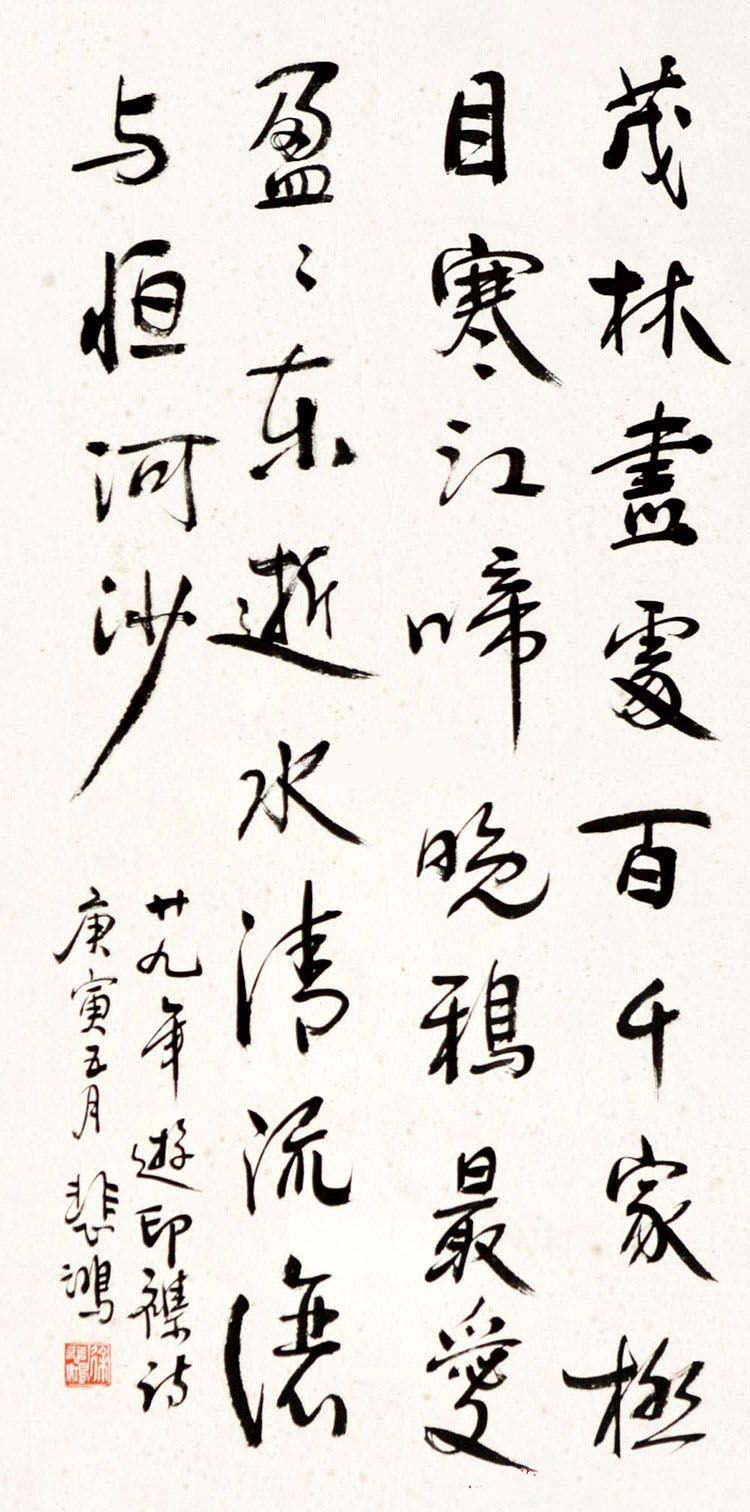 茂林盡處百千家極
目寒江啼晚鴉最愛
盈〻東逝水清流
与恒河沙
廿九年遊印襍詩
庚寅五月 悲鴻